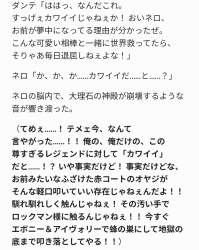 ダンテ「ははっ、なんだこれ。
すっげぇカワイイじゃねぇか！ おいネロ、
お前が夢中になってる理由が分かったぜ。
こんな可愛い相棒と一緒に世界救ってたら、
そりゃあ毎日退屈しねぇよな！」
ネロ「か、か、か……カワイイだ……と……？」
ネロの脳内で、大理石の神殿が崩壊するような
音が響き渡った。
（てめぇ……！ テメェ今、なんて
言やがった……！！ 俺の、俺だけの、この
尊すぎるレジェンドに対して「カワイイ」
だと……！？ いや事実だけど！ 事実だけどな、
お前みたいなふざけた赤コートのオヤジが
そんな軽口叩いていい存在じゃねぇんだよ！！
馴れ馴れしく触んじゃねぇ！ その汚い手で
ロックマン様に触るんじゃねぇ！！ 今すぐ
エボニー＆アイヴォリーで蜂の巣にして地獄の
底まで叩き落としてやる！！）